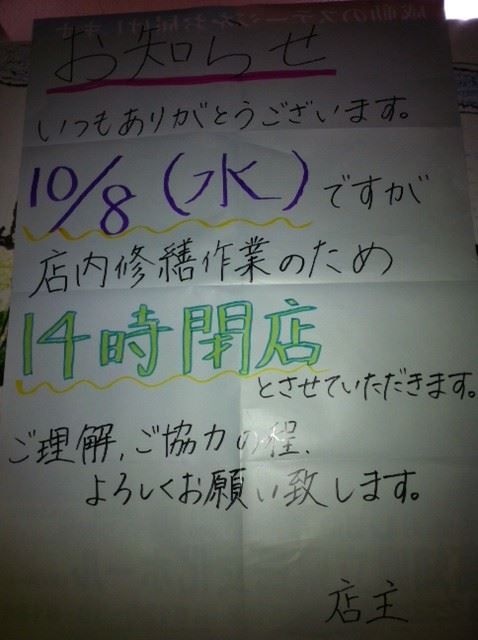 お知らせ
いつもありがとうございます。
10/8(水)ですが
店内修繕作業のため
14時閉店
とさせていただきます。
ご理解,ご協力の程、
よろしくお願い致します。
店主